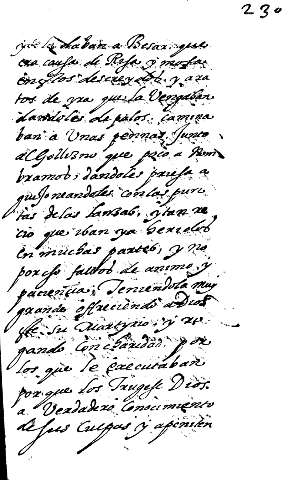 230
y se la daban a Besar, que
era causa de Risa y mofa
en ellos descreydos, y ara
tos de yra que la Vengaban
dandoles de palos, camina
ban a Unas peñas, junto
al Golfo que poco a
bramos, dandoles priesa a
con las pun
tas de las lansas, y tan re
cio que iban ya heridos
en muchas partes, y no
por eso faltos de animo, y
paciencia, teniendola muy
grande offreciendo a Dios
su Martyrio, y ro
gando con charidad, por
los que le executaban
porque los trugese Dios
a Verdadero Conocimiento
de sus Culpas y apeniten